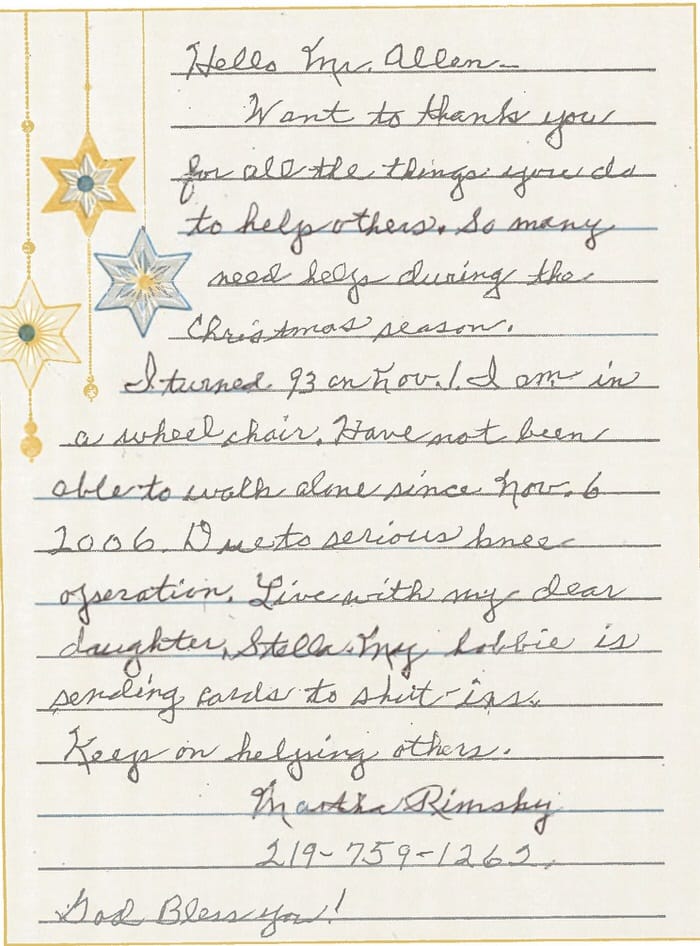 Hello Mr. Allen -
Want to thank you
for all the things you do
to help others. So many
need help during the
Christmas season.
I turned 93 on Nov. 1. I am in
a wheel chair. Have not been
able to walk alone since Nov. 6
2006. Due to serious knee
operation. Live with my dear
daughter, Stella. My hobbie is
sending cards to shut-ins.
Keep on helping others.
Martha Rimsky
219-759-1262.
God Bless you!